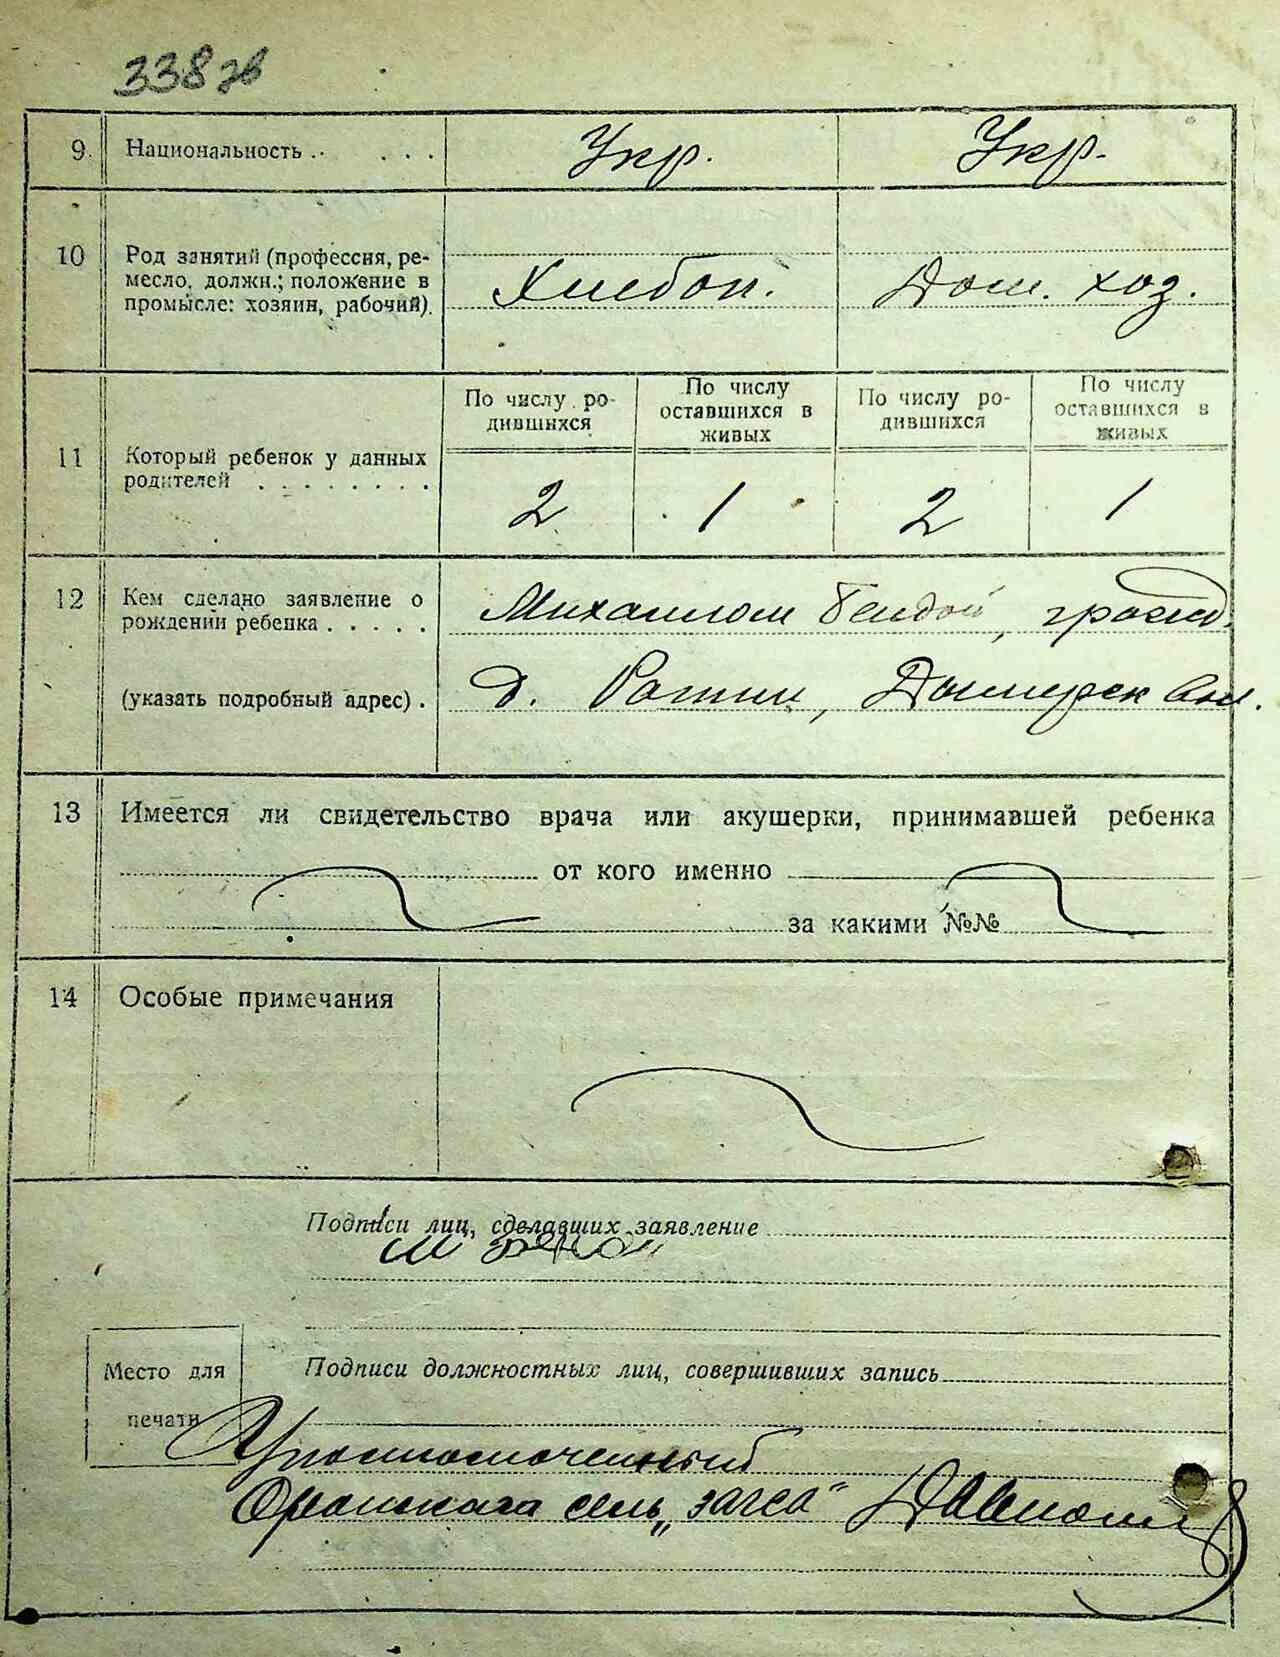 338 зв
9. Национальность . . . . . Укр. Укр.
10 Род занятий (профессия, ре-
месло, должн.; положение в
промысле: хозяин, рабочий). Хлебоп. Дом. хоз.
По числу ро-
дившихся
По числу
оставшихся в
живых
По числу ро-
дившихся
По числу
оставшихся в
живых
11 Который ребенок у данных
родителей . . . . . . . . 2 1 2 1
12 Кем сделано заявление о
рождении ребенка . . . . . Михаилом Бендой, гражд.
(указать подробный адрес) . д. Ротич, Дымерск
13 Имеется ли свидетельство врача или акушерки, принимавшей ребенка
от кого именно
за какими №№
14 Особые примечания
Подписи лиц, сделавших заявление
Место для
печати
Подписи должностных лиц, совершивших запись
Уполномоченный
Оранского сель „загса"